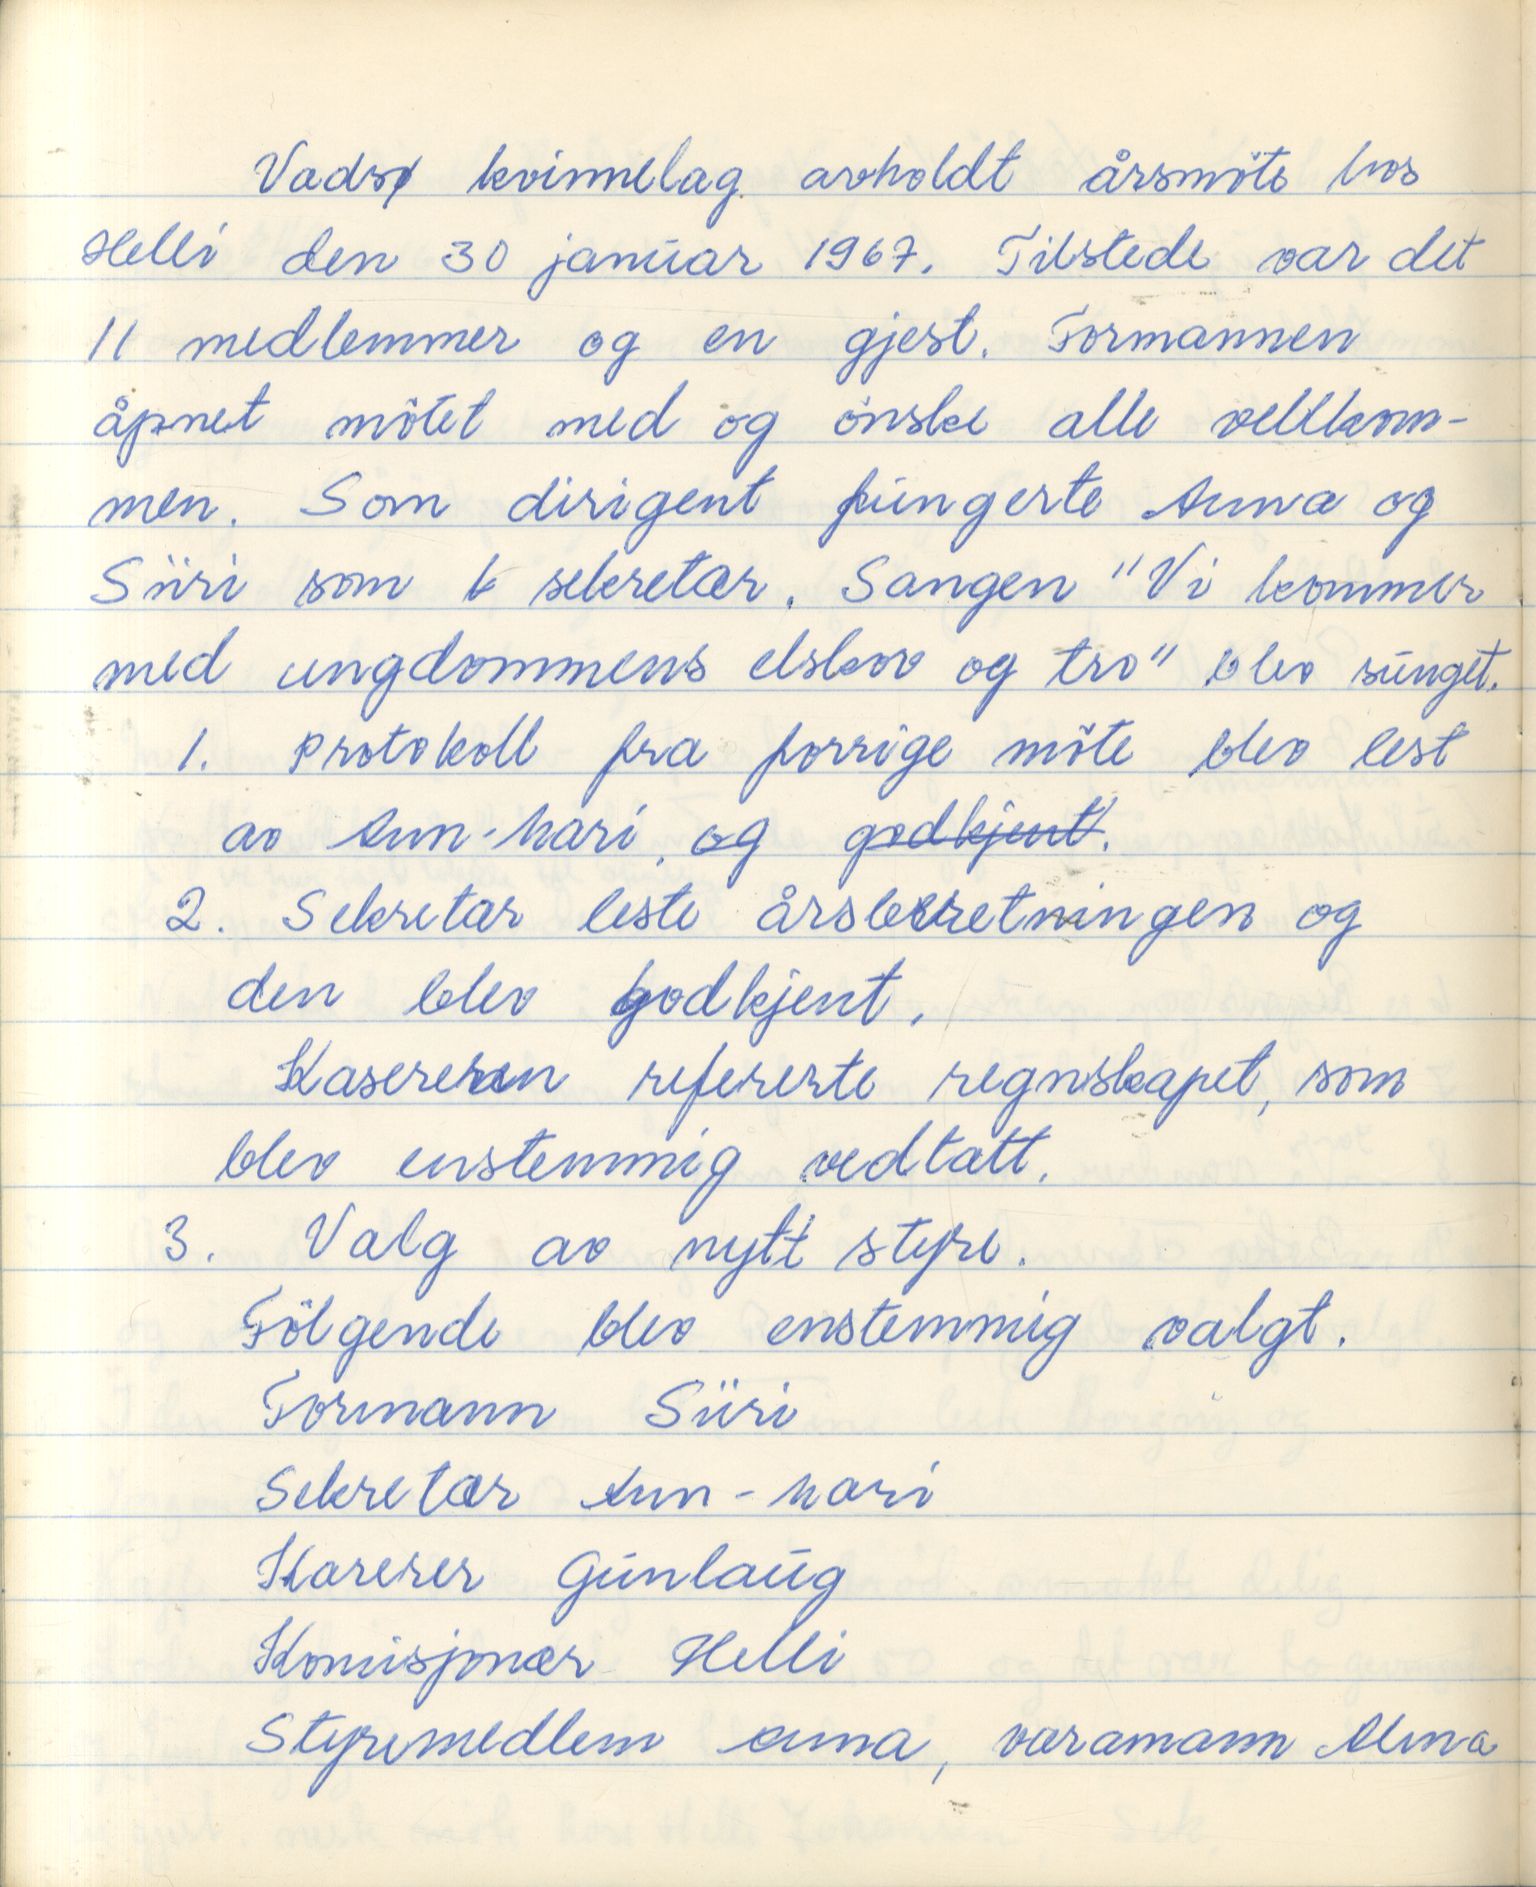 Vadsø kvinnelag avholdt årsmöte hos
Helli den 30 januar 1967. Tilstede var det
11 medlemmer og en gjest. Formannen
åpnet mötet med og önske alle vellkom-
men. Som dirigent fungerte Anna og
Siiri som sekretær. Sangen "Vi kommer
med ungdommens elskov og tro" blev sunget.
1. Protokoll fra forrige möte blev lest
av Ann-Mari. og godkjent.
2. Sekretær leste årsberetningen og
den blev godkjent.
Kasereren refererte regnskapet, som
blev enstemmig vedtatt.
3. Valg av nytt styre.
Fölgende blev enstemmig valgt.
Formann Siiri
Sekretær Ann-Mari
Kaserer Gunlaug
Komisjonær Helli
Styremedlem Anna, varamann Alma